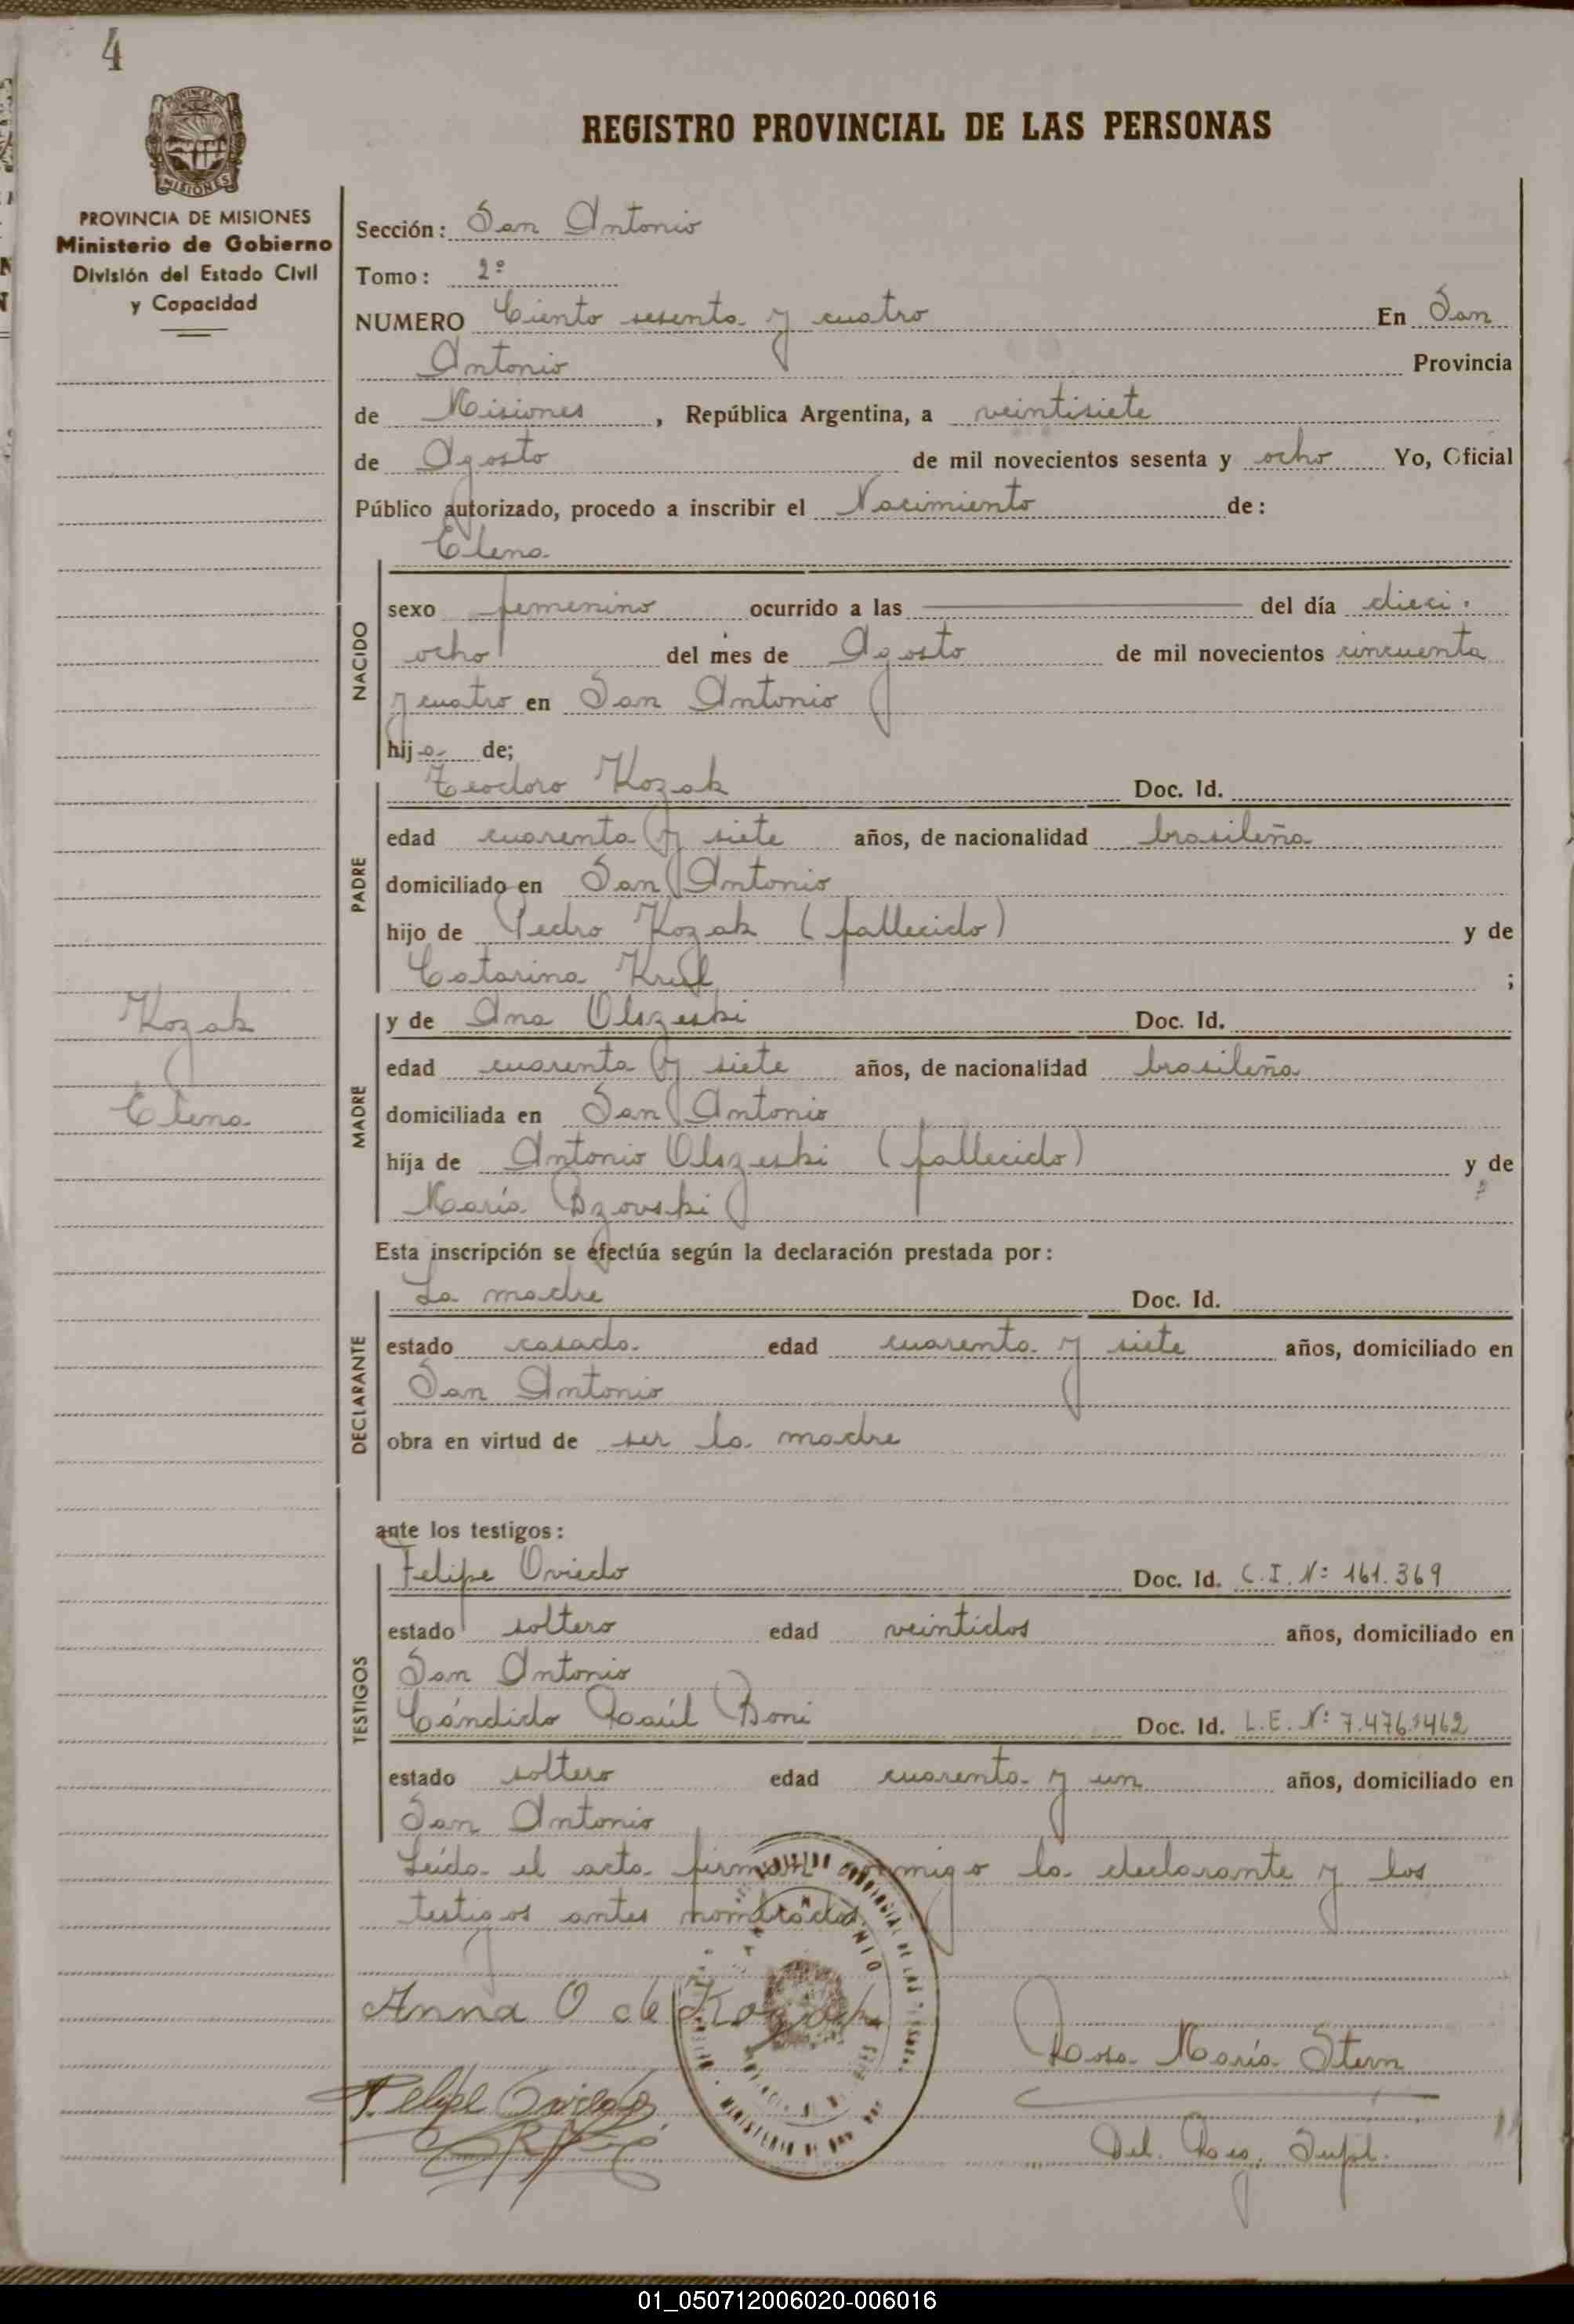 4
PROVINCIA DE
MISIONES
REGISTRO PROVINCIAL DE LAS PERSONAS
PROVINCIA DE MISIONES
Ministerio de Gobierno
División del Estado Civil
y Capacidad
Sección: San Antonio
Tomo: 2º
NUMERO Ciento sesenta y cuatro En San
Antonio Provincia
de Misiones, República Argentina, a veintisiete
de Agosto de mil novecientos sesenta y ocho Yo, Oficial
Público autorizado, procedo a inscribir el Nacimiento de:
Elena
NACIDO
sexo femenino ocurrido a las del día dieci-
ocho del mes de Agosto de mil novecientos cincuenta
y cuatro en San Antonio
hija de;
PADRE
Teodoro Kozak Doc. Id.
edad cuarenta y siete años, de nacionalidad brasileña
domiciliado en San Antonio
hijo de Pedro Kozak (fallecido) y de
Catarina Krul ;
Kozak
Elena
MADRE
y de Ana Olszeski Doc. Id.
edad cuarenta y siete años, de nacionalidad brasileña
domiciliada en San Antonio
hija de Antonio Olszeski (fallecido) y de
María Bzovski
Esta inscripción se efectúa según la declaración prestada por:
DECLARANTE
La madre Doc. Id.
estado casada edad cuarenta y siete años, domiciliado en
San Antonio
obra en virtud de ser la madre
ante los testigos:
TESTIGOS
Felipe Oviedo Doc. Id. C.I. Nº 161.369
estado soltero edad veintidos años, domiciliado en
San Antonio
Cándido Raúl Boni Doc. Id. L.E. Nº 7.476.462
estado soltero edad cuarenta y un años, domiciliado en
San Antonio
Leída el acta firman conmigo la declarante y los
testigos antes nombrados.
Anna O de Kozak
Rosa María Stern
Felipe Oviedo
Del. Reg. Supl.
01_050712006020-006016